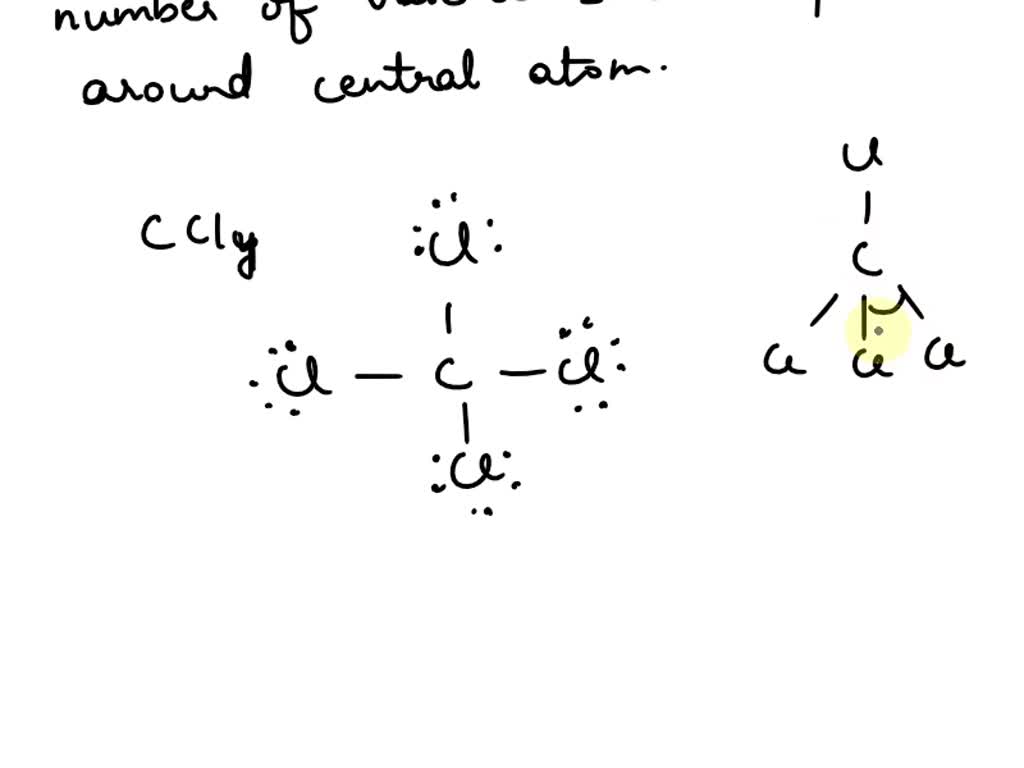 number of
around central atom.
CCl4
Cl
Cl
C
Cl - C - Cl
Cl Cl Cl
Cl